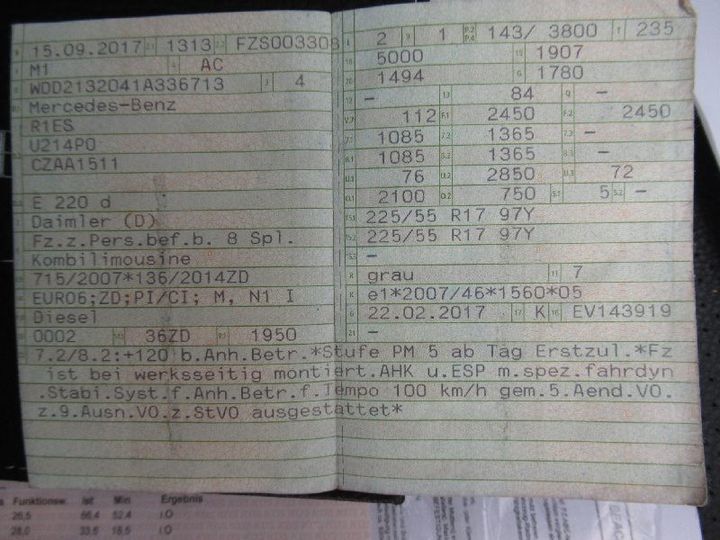 B 15.09.2017 2.1 1313 2.2 FZS003308
J M1 4 AC
E WDD2132041A336713 3 4
Mercedes-Benz
R1ES
U214P0
CZAA1511
E 220 d
Daimler (D)
Fz.z.Pers.bef.b. 8 Spl.
Kombilimousine
715/2007*136/2014ZD
EURO6;ZD;PI/CI; M, N1 I
Diesel
0002 36ZD 1950
L 2 9 1 P.2 P.4 143/ 3800 T 235
18 5000 19 1907
20 1494 G 1780
12 – 13 84 Q –
V.7 112 F.1 2450 F.2 2450
7.1 1085 7.2 1365 7.3 –
8.1 1085 8.2 1365 8.3 –
U.1 76 O.1 2850 U.3 72
O.1 2100 O.2 750 S.1 5 S.2 –
15.1 225/55 R17 97Y
15.2 225/55 R17 97Y
15.3 –
R grau 11 7
K e1*2007/46*1560*05
6 22.02.2017 17 K 16 EV143919
21 –
7.2/8.2:+120 b.Anh.Betr.*Stufe PM 5 ab Tag Erstzul.*Fz
ist bei werksseitig montiert.AHK u.ESP m.spez.fahrdyn
.Stabi.Syst.f.Anh.Betr.f.Tempo 100 km/h gem.5.Aend.VO.
z.9.Ausn.VO.z.StVO ausgestattet*
Funktionsw. Ist Min Ergebnis
26,5 66,4 52,4 i.O
28,0 33,6 18,5 i.O